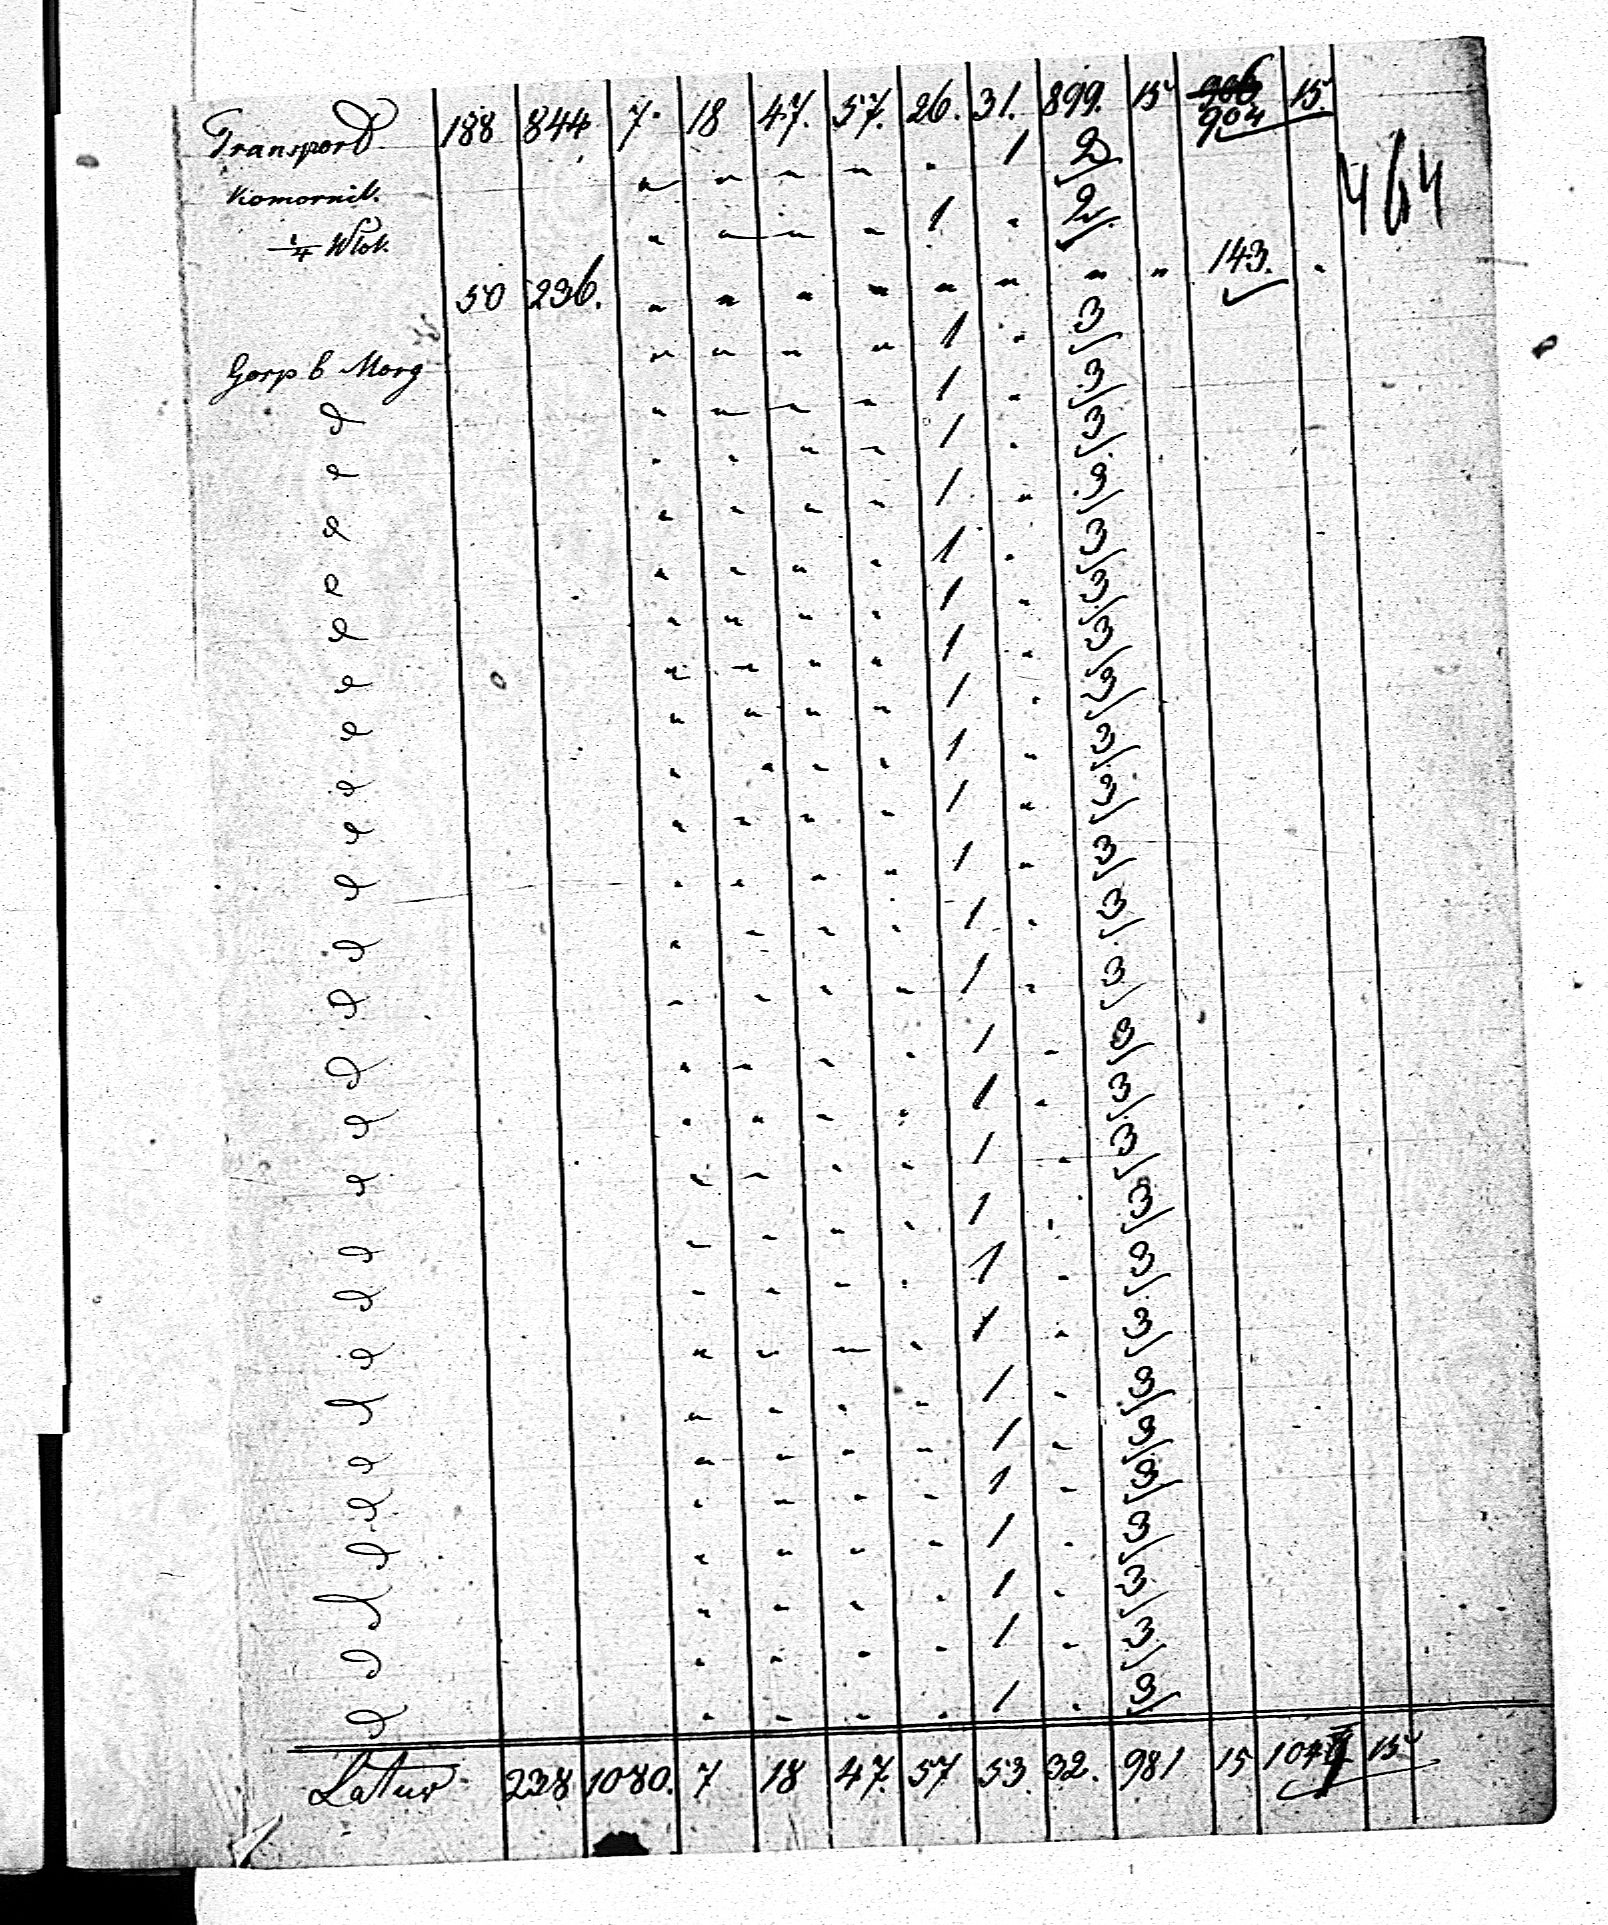 Transport 188 844 7. 18 47. 57. 26. 31. 899. 15 906. 904 15.
464
Komornik. " " " " " 1 2/
1/4 Włok. " " " " 1 " 2/
50 236. " " " " " " " " 143. "
Gosp 6 Morg " " " " 1 " 3/
d " " " " 1 " 3/
d " " " " 1 " 3/
d " " " " 1 " 3/
d " " " " 1 " 3/
d " " " " 1 " 3/
d " " " " 1 " 3/
d " " " " 1 " 3/
d " " " " 1 " 3/
d " " " " 1 " 3/
d " " " " 1 " 3/
d " " " " 1 " 3/
d " " " " 1 " 3/
d " " " " 1 " 3/
d " " " " 1 " 3/
d " " " " 1 " 3/
d " " " " 1 " 3/
d " " " " 1 " 3/
d " " " " 1 " 3/
d " " " " 1 " 3/
d " " " " 1 " 3/
d " " " " 1 " 3/
d " " " " 1 " 3/
d " " " " 1 " 3/
d " " " " 1 " 3/
d " " " " 1 " 3/
Latus 238 1080. 7 18 47. 57 53 32. 981 15 1047 15